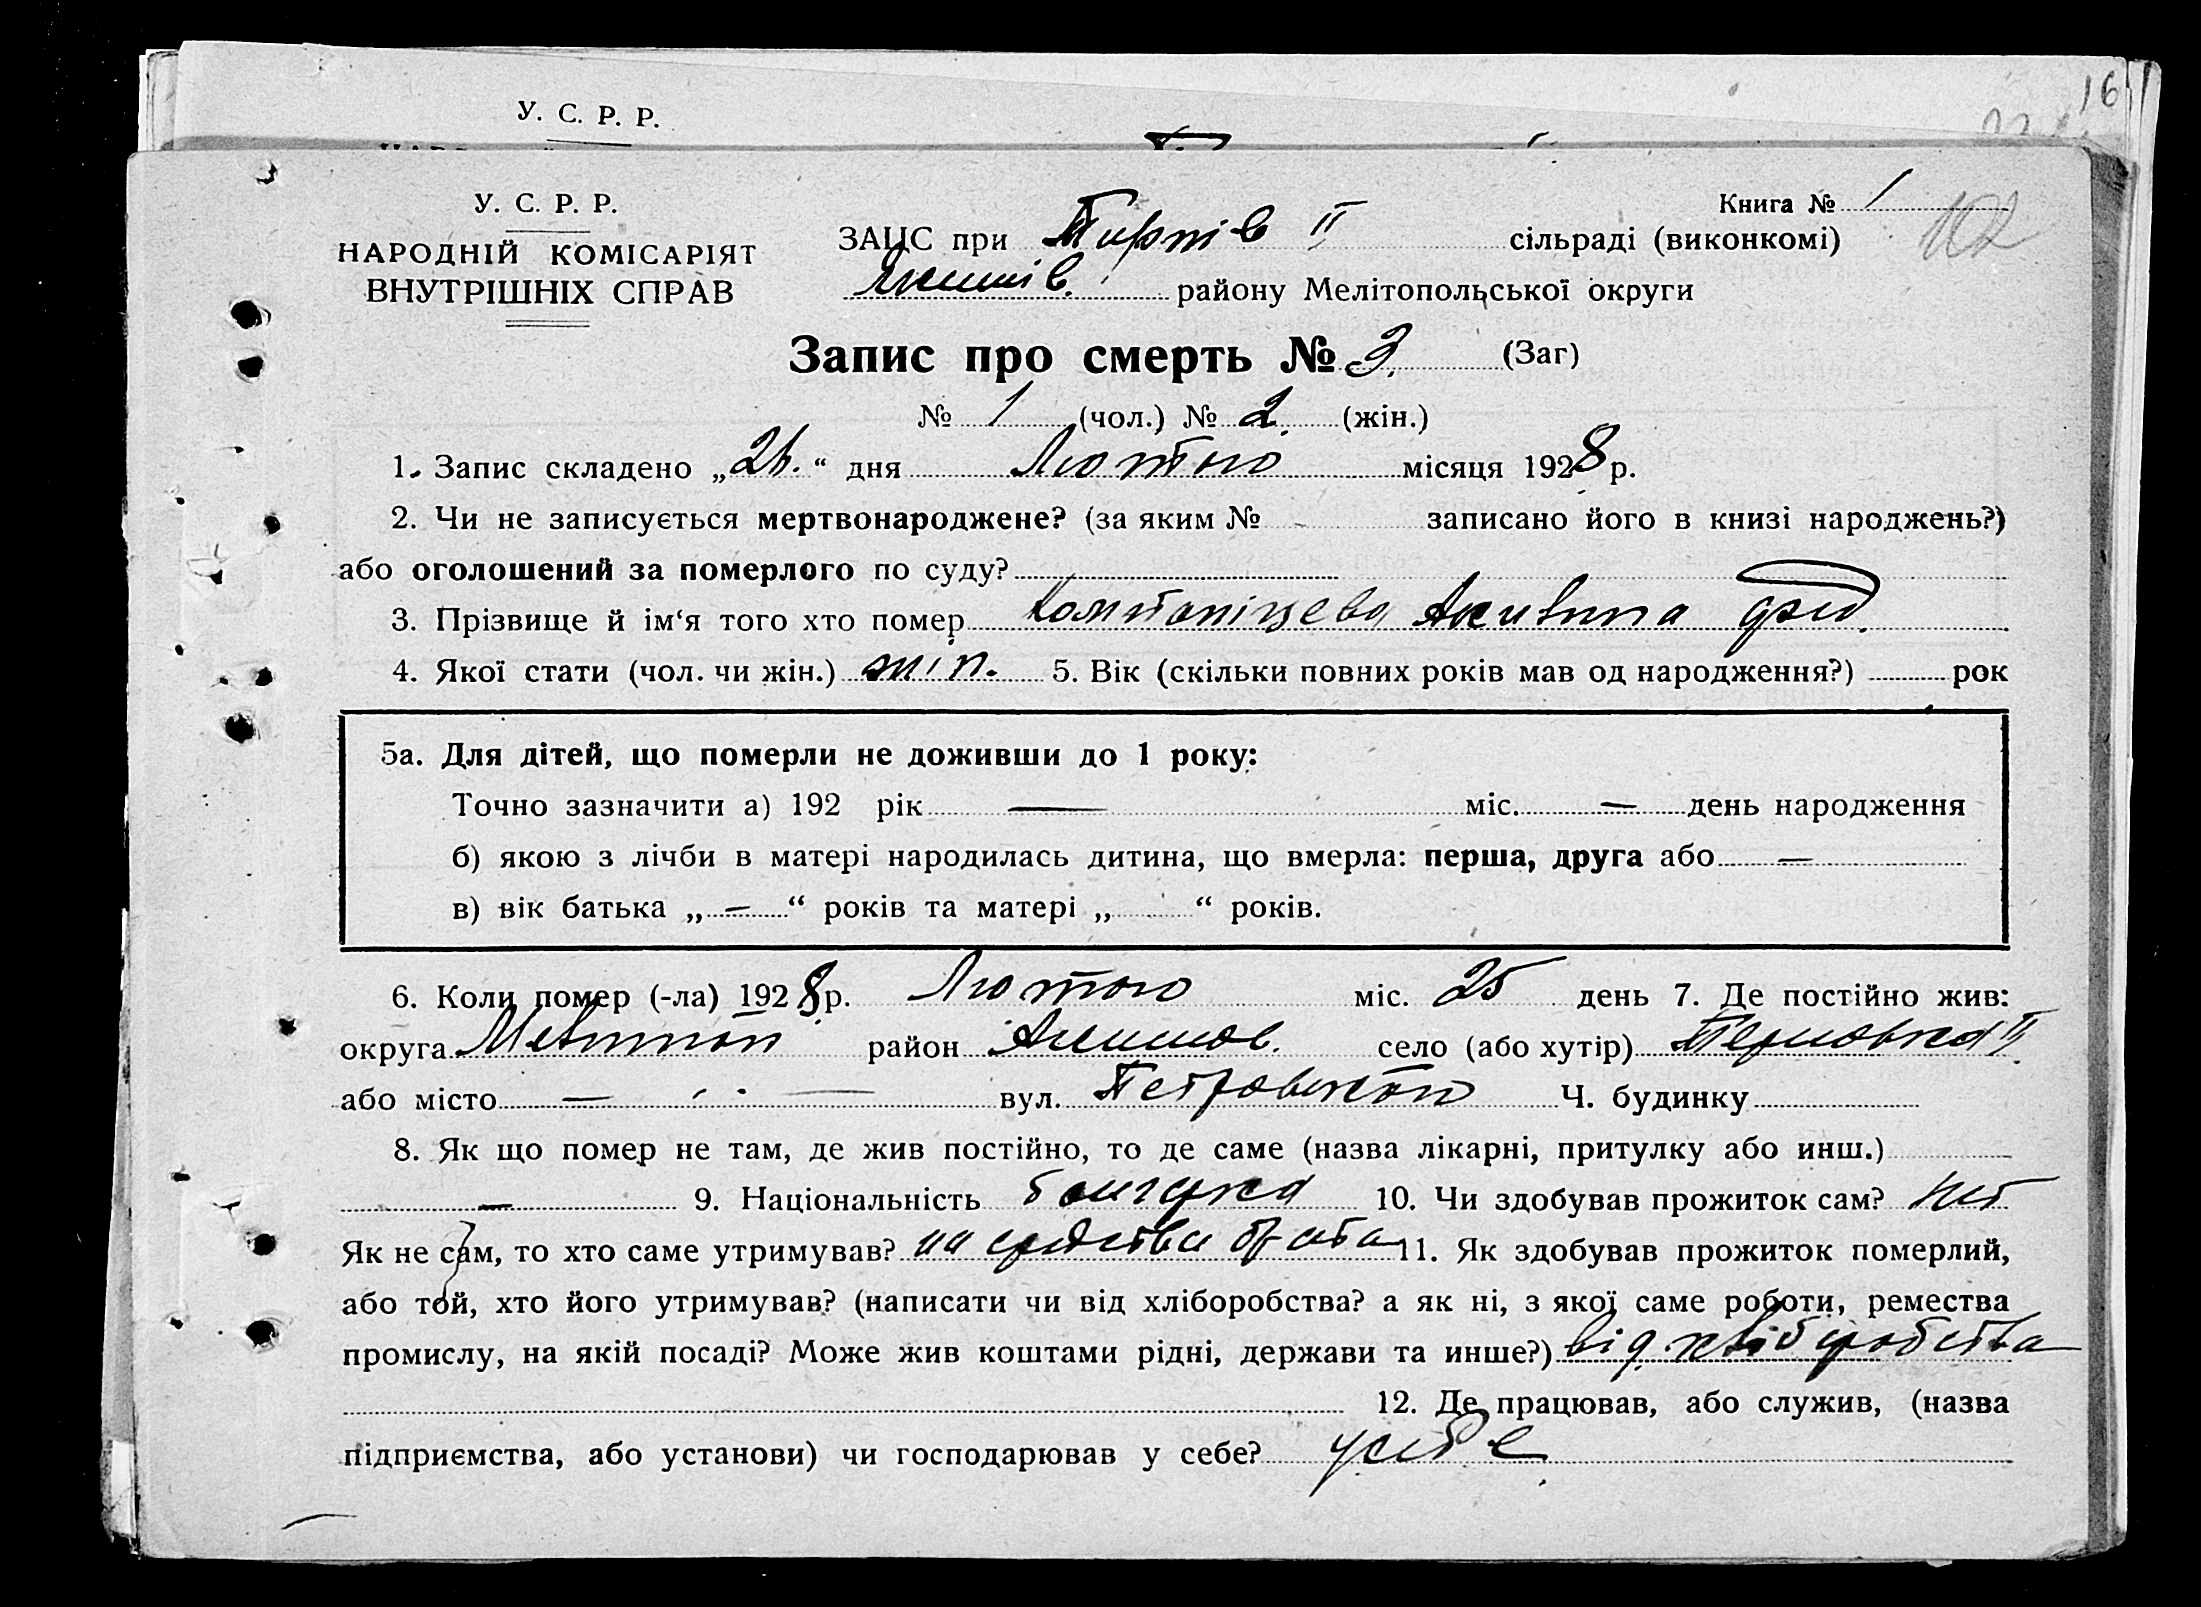 16
У. С. Р. Р.
У. С. Р. Р.
НАРОДНІЙ КОМІСАРІЯТ
ВНУТРІШНІХ СПРАВ
Книга № 1
102
ЗАЦС при II сільраді (виконкомі)
району Мелітопольської округи
Запис про смерть № 3 (Заг)
№ 1 (чол.) № 2 (жін.)
1. Запис складено „26.“ дня Лютого місяця 1928 р.
2. Чи не записується мертвонароджене? (за яким № - записано його в книзі народжень?)
або оголошений за померлого по суду?
3. Прізвище й ім‘я того хто помер
4. Якої стати (чол. чи жін.) жін. 5. Вік (скільки повних років мав од народження?) рок
5а. Для дітей, що померли не доживши до 1 року:
Точно зазначити а) 192 рік — міс. — день народження
б) якою з лічби в матері народилась дитина, що вмерла: перша, друга або —
в) вік батька „ — “ років та матері „ “ років.
6. Коли помер (-ла) 1928 р. Лютого міс. 25 день 7. Де постійно жив:
округа район Акимов. село (або хутір) II
або місто — вул. Петровского Ч. будинку
8. Як що помер не там, де жив постійно, то де саме (назва лікарні, притулку або инш.)
— 9. Національність болгарка 10. Чи здобував прожиток сам? нет
Як не сам, то хто саме утримував? на средства брата 11. Як здобував прожиток померлий,
або той, хто його утримував? (написати чи від хліборобства? а як ні, з якої саме роботи, ремества
промислу, на якій посаді? Може жив коштами рідні, держави та инше?) від хліборобства
12. Де працював, або служив, (назва
підприємства, або установи) чи господарював у себе? у себе